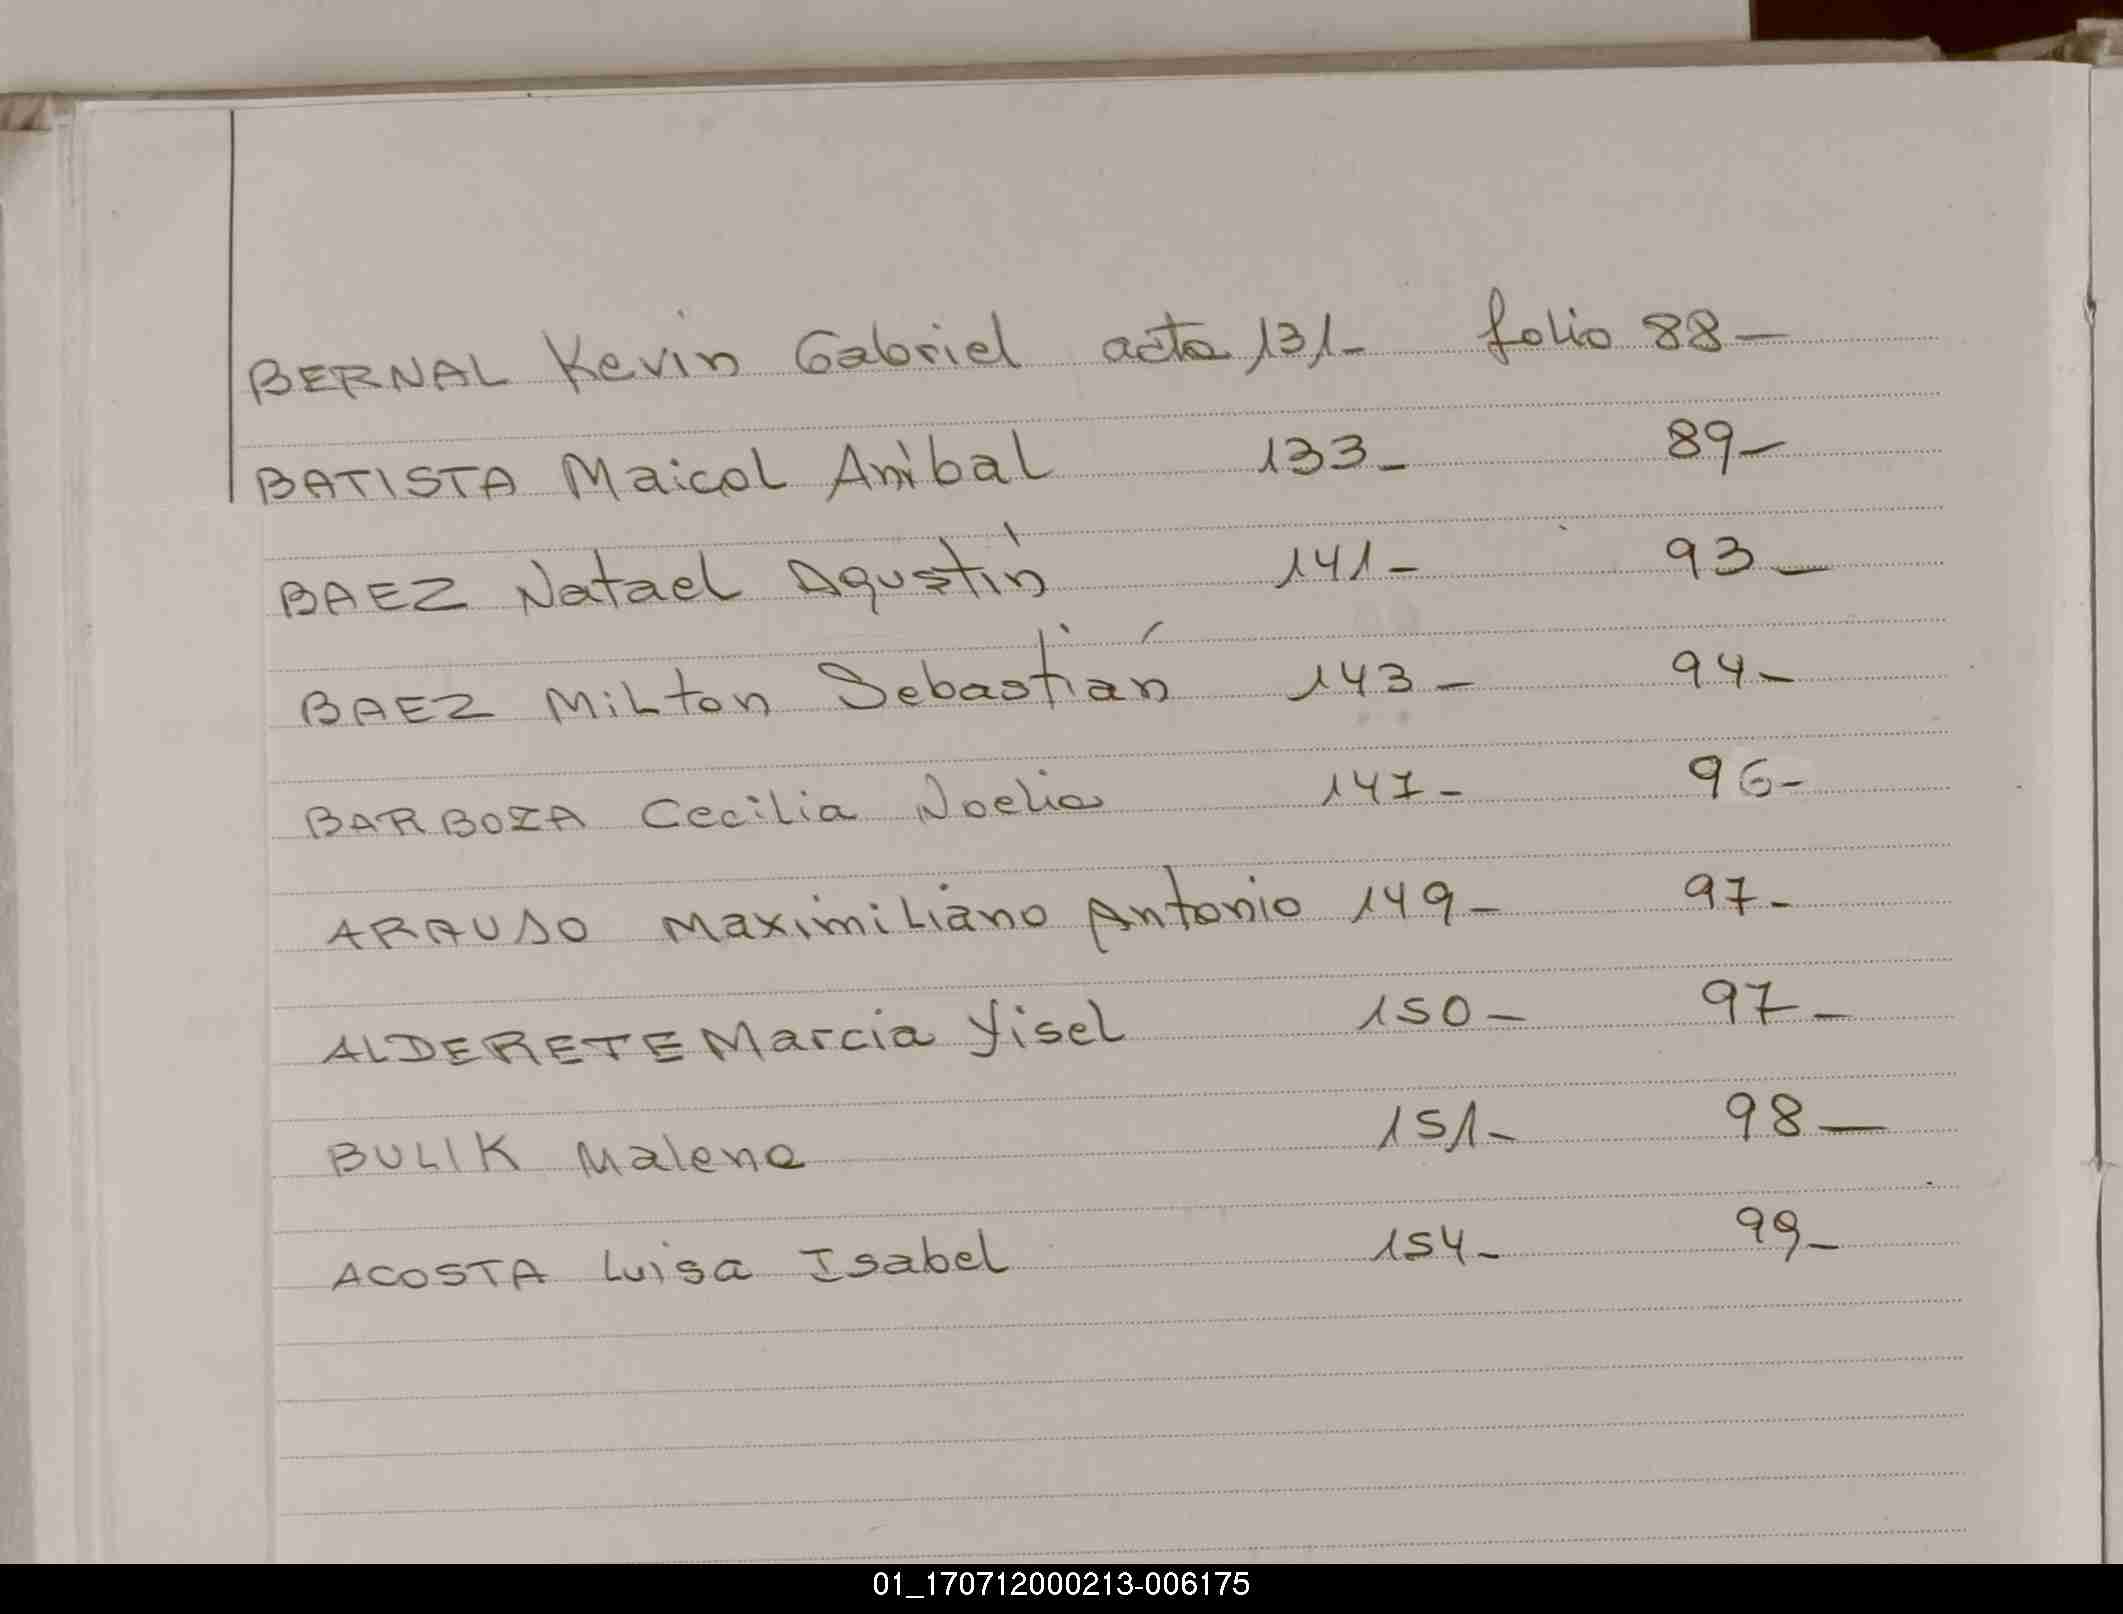 BERNAL Kevin Gabriel acta 131- folio 88-
BATISTA Maicol Anibal 133- 89-
BAEZ Natael Agustín 141- 93-
BAEZ Milton Sebastián 143- 94-
BARBOZA Cecilia Noelia 147- 96-
ARAUJO Maximiliano Antonio 149- 97-
ALDERETE Marcia Yisel 150- 97-
BULIK Malena 151- 98-
ACOSTA Luisa Isabel 154- 99-
01_170712000213-006175